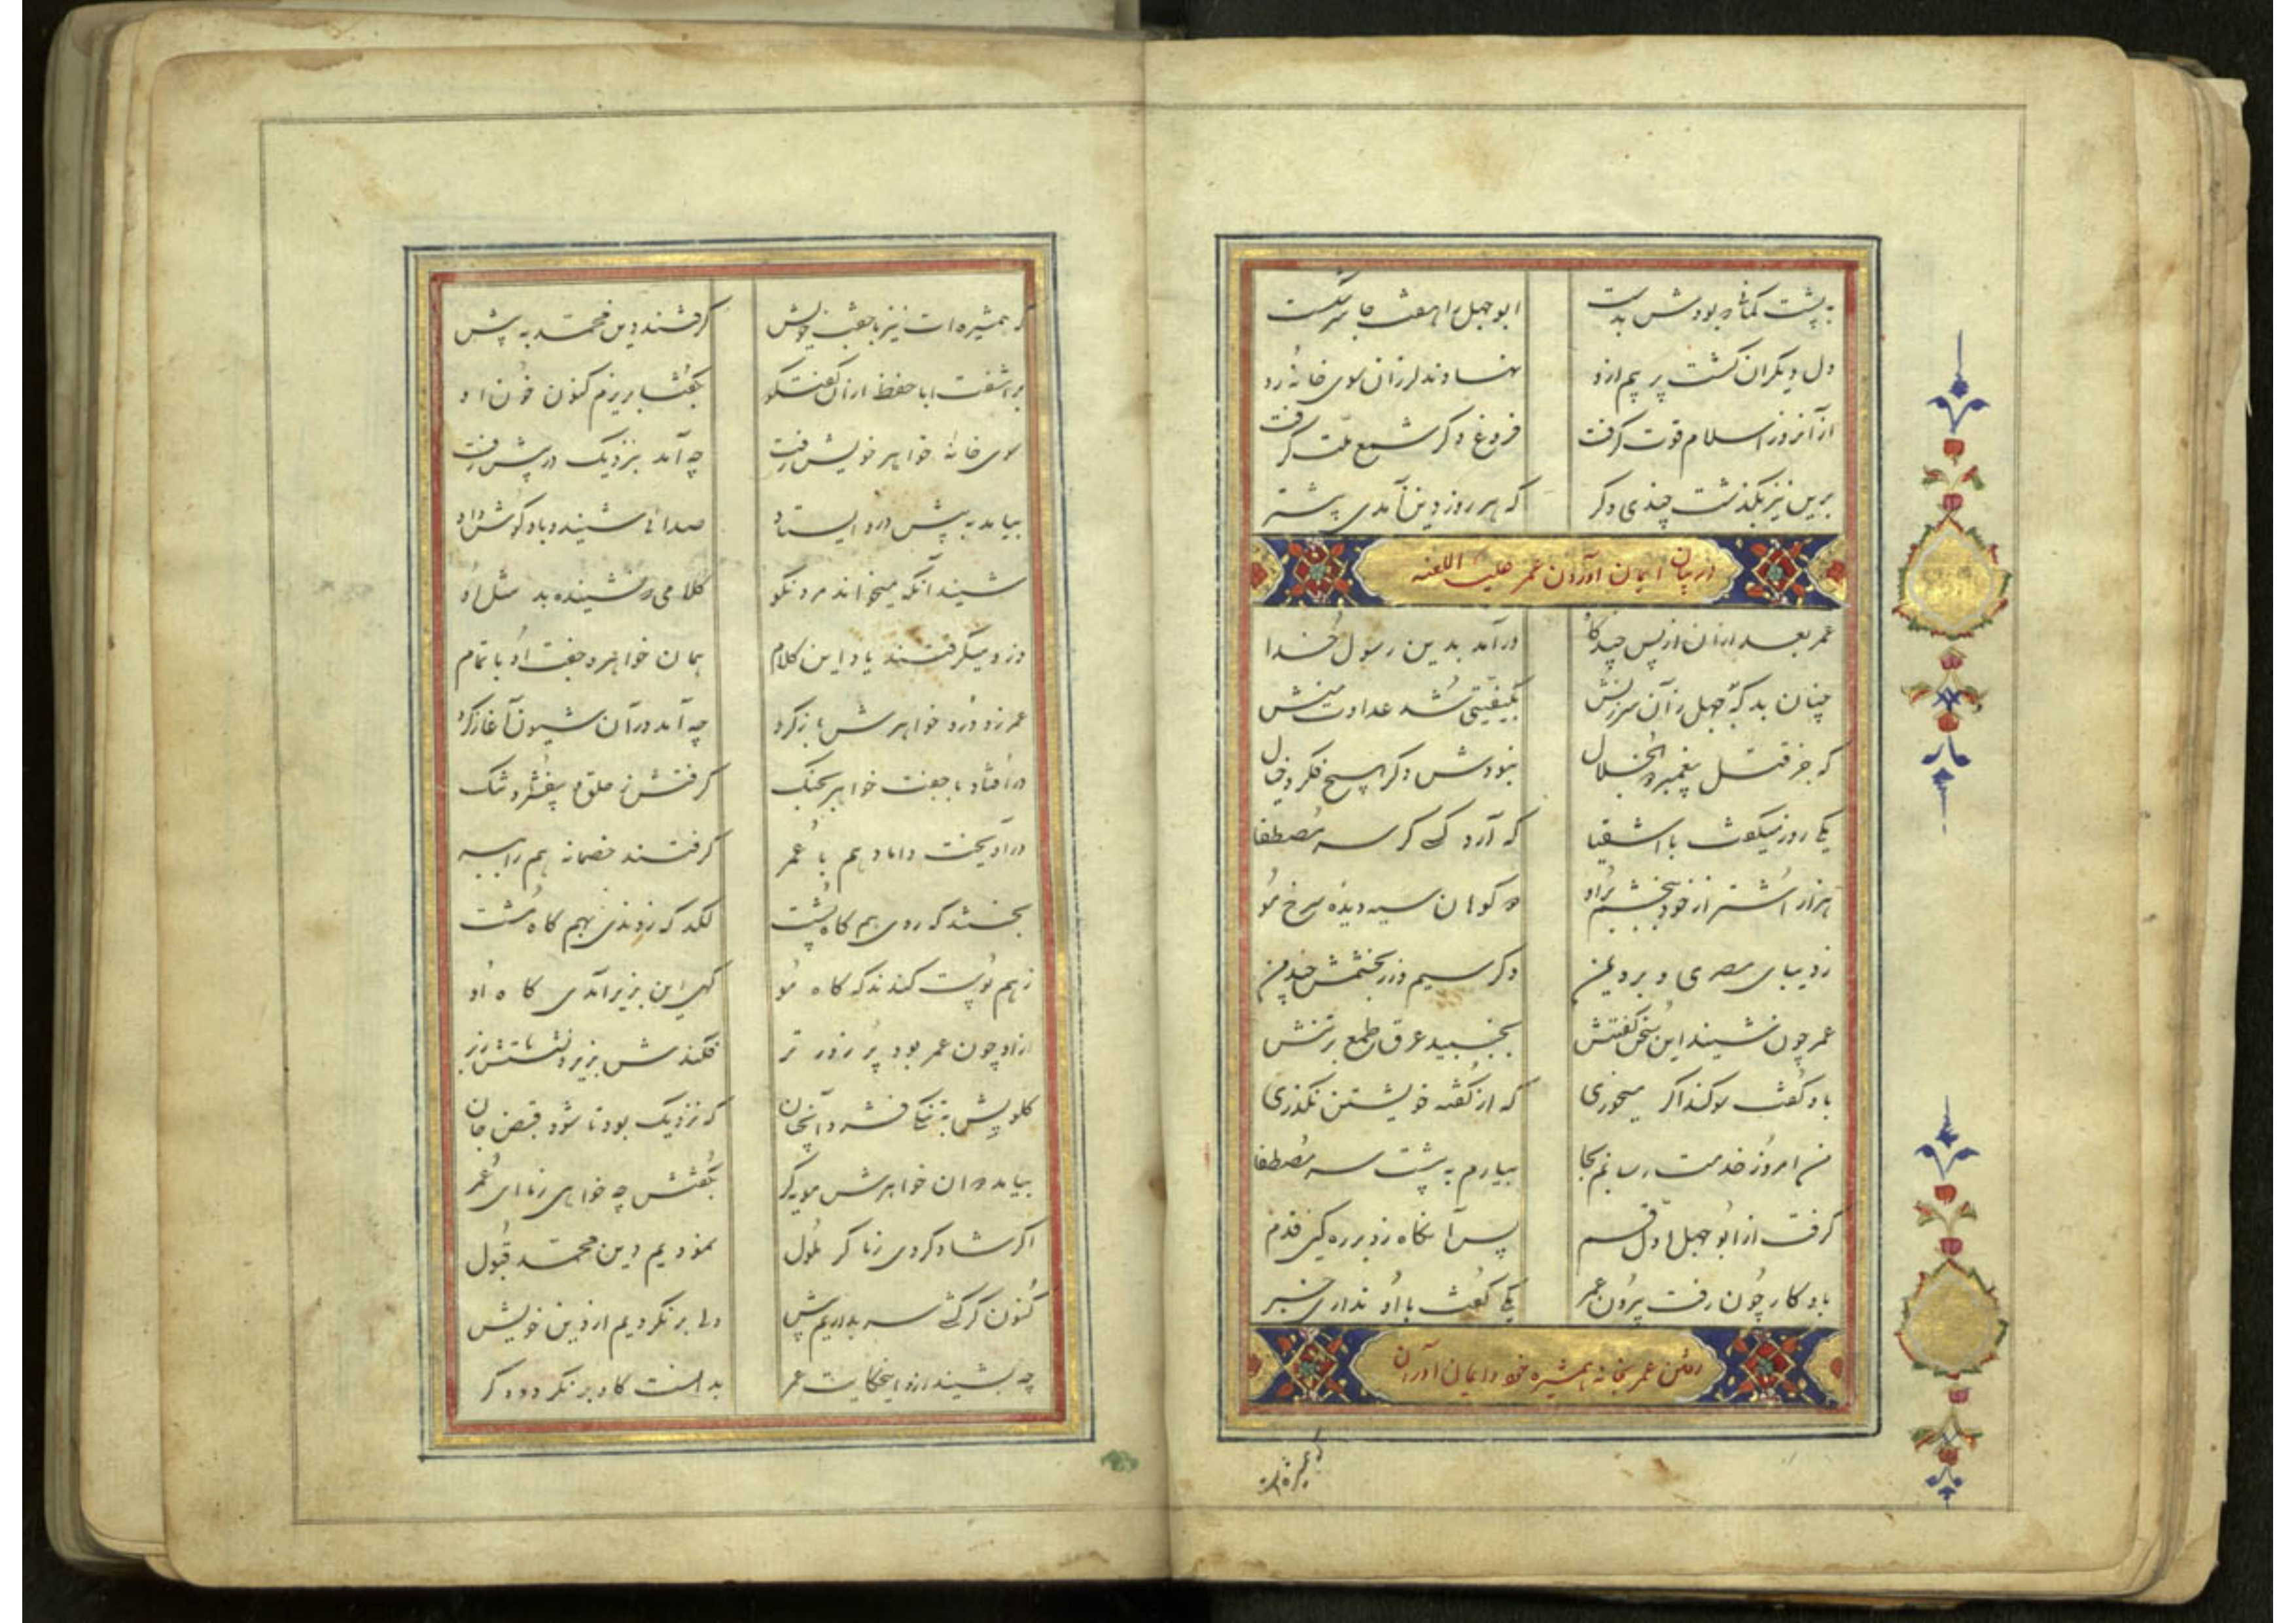 به پشت کمانی که بودش بدست ابوجهل را همعت جا سر شکست
دل دیگران گشت پر بیم ازو نهادند لرزان سوی خانه رو
از آنروز اسلام قوت گرفت فروغ دگر شمع ملت گرفت
برین نیز بگذشت چندی دگر که هر روز دین آمدی پیشتر
در بیان ایمان آوردن عمر علیه اللعنه
عمر بعد ازان از پس چندگاه درآمد بدین رسول خدا
چنان بد که بوجهل زآن سرزنش بکیفیتی شد عداوت منش
که جز قتل پیغمبر ذوالجلال نبودش دگر هیچ فکر و خیال
یکی روز میگفت با اشقیا که آرد کسی گر سر مصطفا
هزار اشتر از خود ببخشم براو دو کوهان سیه دیده سرخ مو
ز دیبای مصری و برد یمن دگر سیم و زر بخشمش چند من
عمر چون شنید این سخن گفتنش بجنبید عرق طمع برتنش
باو گفت سوگند اگر میخوری که از گفته خویشتن نگذری
من امروز خدمت رسانم بجا بیارم به پشت سر مصطفا
گرفت از ابو جهل اول قسم پس آنگاه زد بر ره کین قدم
باو کار چون رفت بیرون عمر یکی گفت با او نداری خبر
رفتن عمر بخانه همشیره خود و ایمان آوردن
که همشیره‌ات
که همشیره‌ات نیز با جفت خویش گرفتند دین محمد به پیش
برآشفت ابا حفظ ازان گفتگو بگفتا بریزم کنون خون او
سوی خانه خواهر خویش رفت چه آمد بنزدیک در پیش رفت
بیامد به پیش در و ایستاد صدائی شنید و باو گوش داد
شنید آنکه میخواند مرد نکو کلامی که نشنیده بد مثل او
وزو میگرفتند یاد این کلام همان خواهر و جفت او با تمام
عمر زد در و خواهرش باز کرد چه آمد در آن شیون آغاز کرد
در افتاد با جفت خواهر بجنگ گرفتش ز حلق و بیفشرد تنگ
درآویخت داماد هم با عمر گرفتند خصمانه هم را ببر
بخستند گه روی هم گاه پشت لگد گه زدندی بهم گاه مشت
ز هم پوست کندند گه گاه مو گهی این بزیر آمدی گاه او
ازو چون عمر بود پر زور تر فکندش بزیر و نشستش زبر
گلویش بتنگی فشرد آنچنان که نزدیک بود تا شود قبض جان
بیامد دوان خواهرش مویه‌گر بگفتش چه خواهی ز ما ای عمر
اگر شاد گردی ز ما گر ملول نمودیم دین محمد قبول
کنون گر کشی سر بداریم پیش ولی بر نگردیم از دین خویش
چه بشنید ازو اینحکایت عمر بدانست کاو بر نگردد دگر